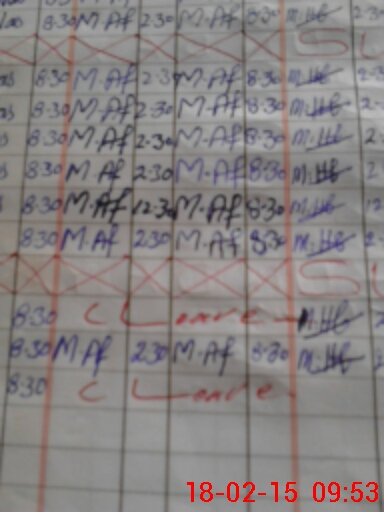 8:30 M.Af 2:30 M.Af 8:30 M.Hb 2:3
SU
8:30 M.Af 2:30 M.Af 8:30 M.Hb 2:3
8:30 M.Af 2:30 M.Af 8:30 M.Hb 2
8:30 M.Af 2:30 M.Af 8:30 M.Hb 2
8:30 M.Af 2:30 M.Af 8:30 M.Hb 2
8:30 M.Af 12:30 M.Af 8:30 M.Hb 12
8:30 M.Af 2:30 M.Af 8:30 M.Hb 2
SU
8:30 C Leave M.Hb
8:30 M.Af 2:30 M.Af 8:30 M.Hb 2
8:30 C Leave
18-02-15 09:53